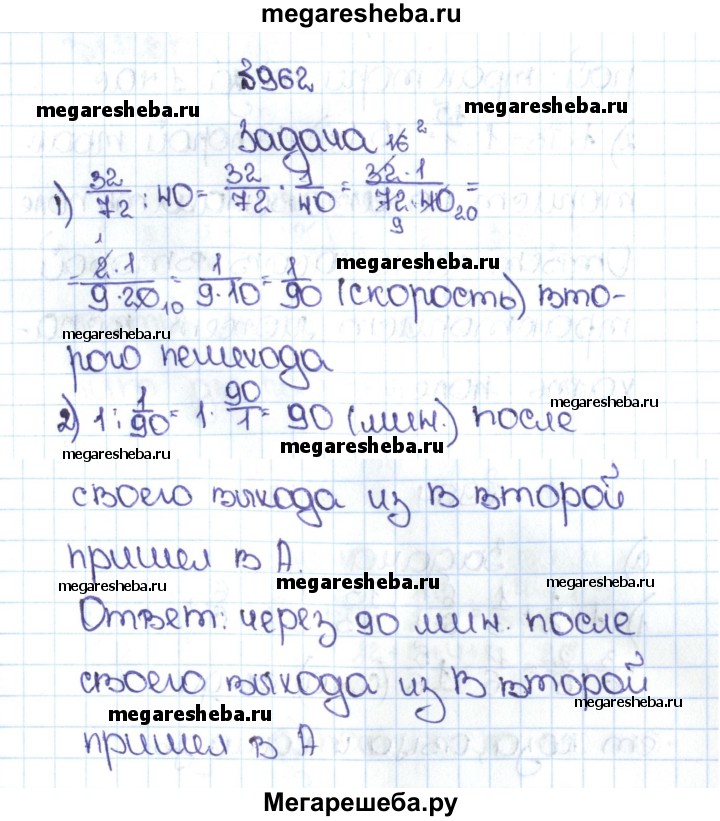 megaresheba.ru
№962
megaresheba.ru megaresheba.ru
Задача
1) 32/72 : 40 = 32/72 · 1/40 = 32·1/72·40 =
16 2 9 20
= 2·1/9·20 = 1/9·10 = 1/90 (скорость) вто-
1 10
megaresheba.ru
megaresheba.ru
рого пешехода
2) 1 : 1/90 = 1 · 90/1 = 90 (мин.) после
megaresheba.ru
megaresheba.ru megaresheba.ru
своего выхода из В второй
пришел в А.
megaresheba.ru megaresheba.ru megaresheba.ru
Ответ: через 90 мин. после
своего выхода из В второй
megaresheba.ru megaresheba.ru
пришел в А
Мегарешеба.ру